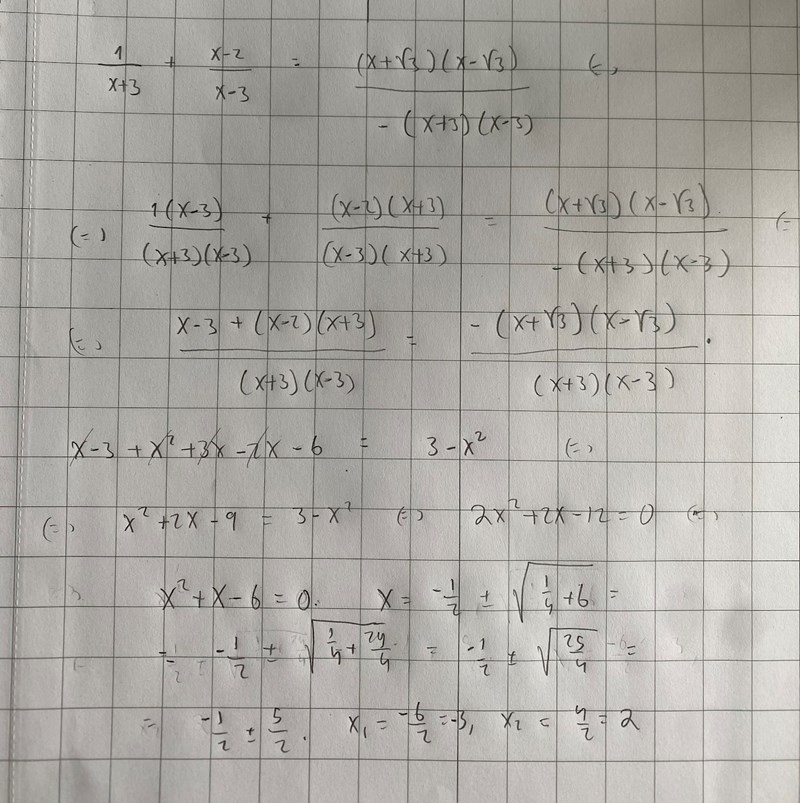 1/(x+3) + (x-2)/(x-3) = (x+√3)(x-√3)/-(x+3)(x-3) (=)
(=) 1(x-3)/(x+3)(x-3) + (x-2)(x+3)/(x-3)(x+3) = (x+√3)(x-√3)/-(x+3)(x-3) (=
(=) (x-3+(x-2)(x+3))/(x+3)(x-3) = -(x+√3)(x-√3)/(x+3)(x-3).
x-3+x²+3x-2x-6 = 3-x² (=)
(=) x²+2x-9 = 3-x² (=) 2x²+2x-12=0 (=)
x²+x-6=0. x = -1/2 ± √(1/4+6) =
= -1/2 ± √(1/4+24/4) = -1/2 ± √(25/4) =
= -1/2 ± 5/2. x₁ = -6/2 = -3, x₂ = 4/2 = 2